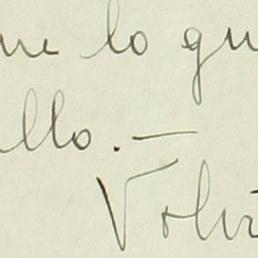 me lo qu
ello. —
Volv